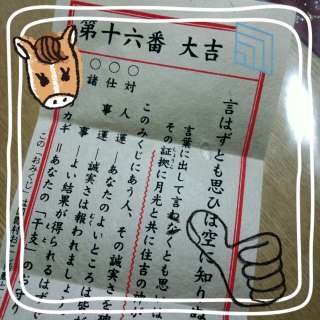 第十六番 大吉
言はずとも思ひは空に知り
言葉に出して言ねなくとも思いは
その証拠に月光と共に住吉の
このみくじにあう人、その誠実さを
○対人運―あなたのよいところは
○仕事運―誠実さは報われましょう
○諸事―よい結果が得られるはず
カギ＝あなたの「干支」の
この「おみくじ」は